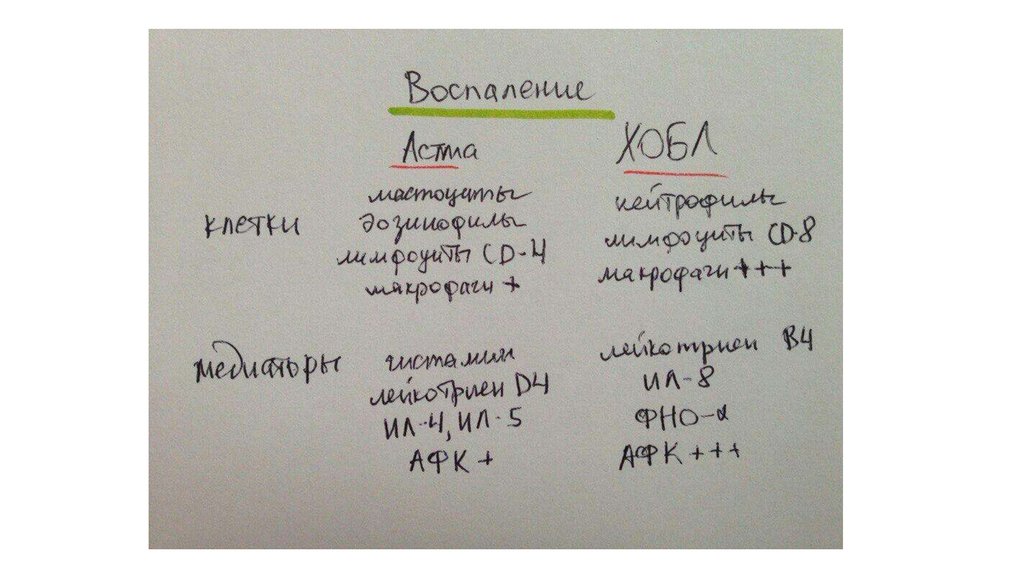 Воспаление
Астма ХОБЛ
клетки
мастоциты
эозинофилы
лимфоциты CD-4
макрофаги +
нейтрофилы
лимфоциты CD-8
макрофаги +++
медиаторы
гистамин
лейкотриен D4
ИЛ-4, ИЛ-5
АФК +
лейкотриен B4
ИЛ-8
ФНО-α
АФК +++